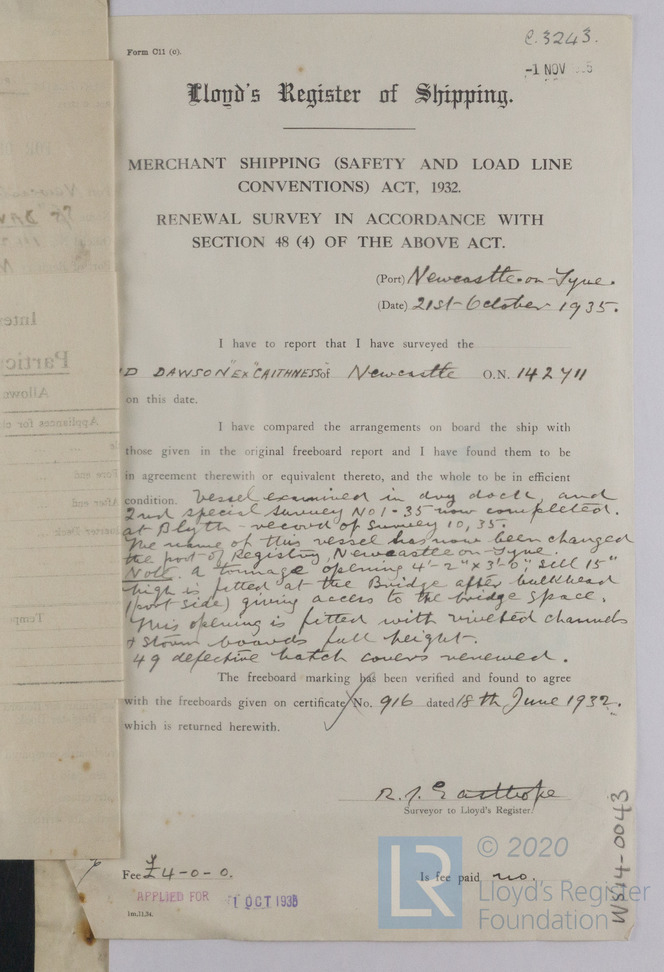 C.3243.
Form C11 (c).
-1 NOV
Lloyd's Register of Shipping.
MERCHANT SHIPPING (SAFETY AND LOAD LINE
CONVENTIONS) ACT, 1932.
RENEWAL SURVEY IN ACCORDANCE WITH
SECTION 48 (4) OF THE ABOVE ACT.
(Port) Newcastle-on-Tyne.
(Date) 21st October 1935.
I have to report that I have surveyed the
D DAWSON "EX" CAITHNESS of Newcastle O.N. 142711
on this date.
I have compared the arrangements on board the ship with
those given in the original freeboard report and I have found them to be
in agreement therewith or equivalent thereto, and the whole to be in efficient
condition. Vessel examined in dry dock, and
2nd special survey No 1-35 now completed.
at Blyth - record of Survey 10,35.
The name of this vessel has now been changed
the port of Registry, Newcastle-on-Tyne.
Note. a tonnage opening 4'-2" x 3'-0", sill 15"
high is fitted at the Bridge after bulkhead
(port side) giving access to the bridge space.
This opening is fitted with riveted channels
+ storm boards full height.
49 defective hatch covers renewed.
The freeboard marking has been verified and found to agree
with the freeboards given on certificate No. 916 dated 18th June 1932.
which is returned herewith.
R. J. Easthope
Surveyor to Lloyd's Register.
Fee £4-0-0. Is fee paid no.
APPLIED FOR 1 OCT 1935
1m.11.34.
W514-0043
LR
© 2020
Lloyd's Register
Foundation
Inte
Partic
Allow
Appliances for cl
Fore end
After end
Temp